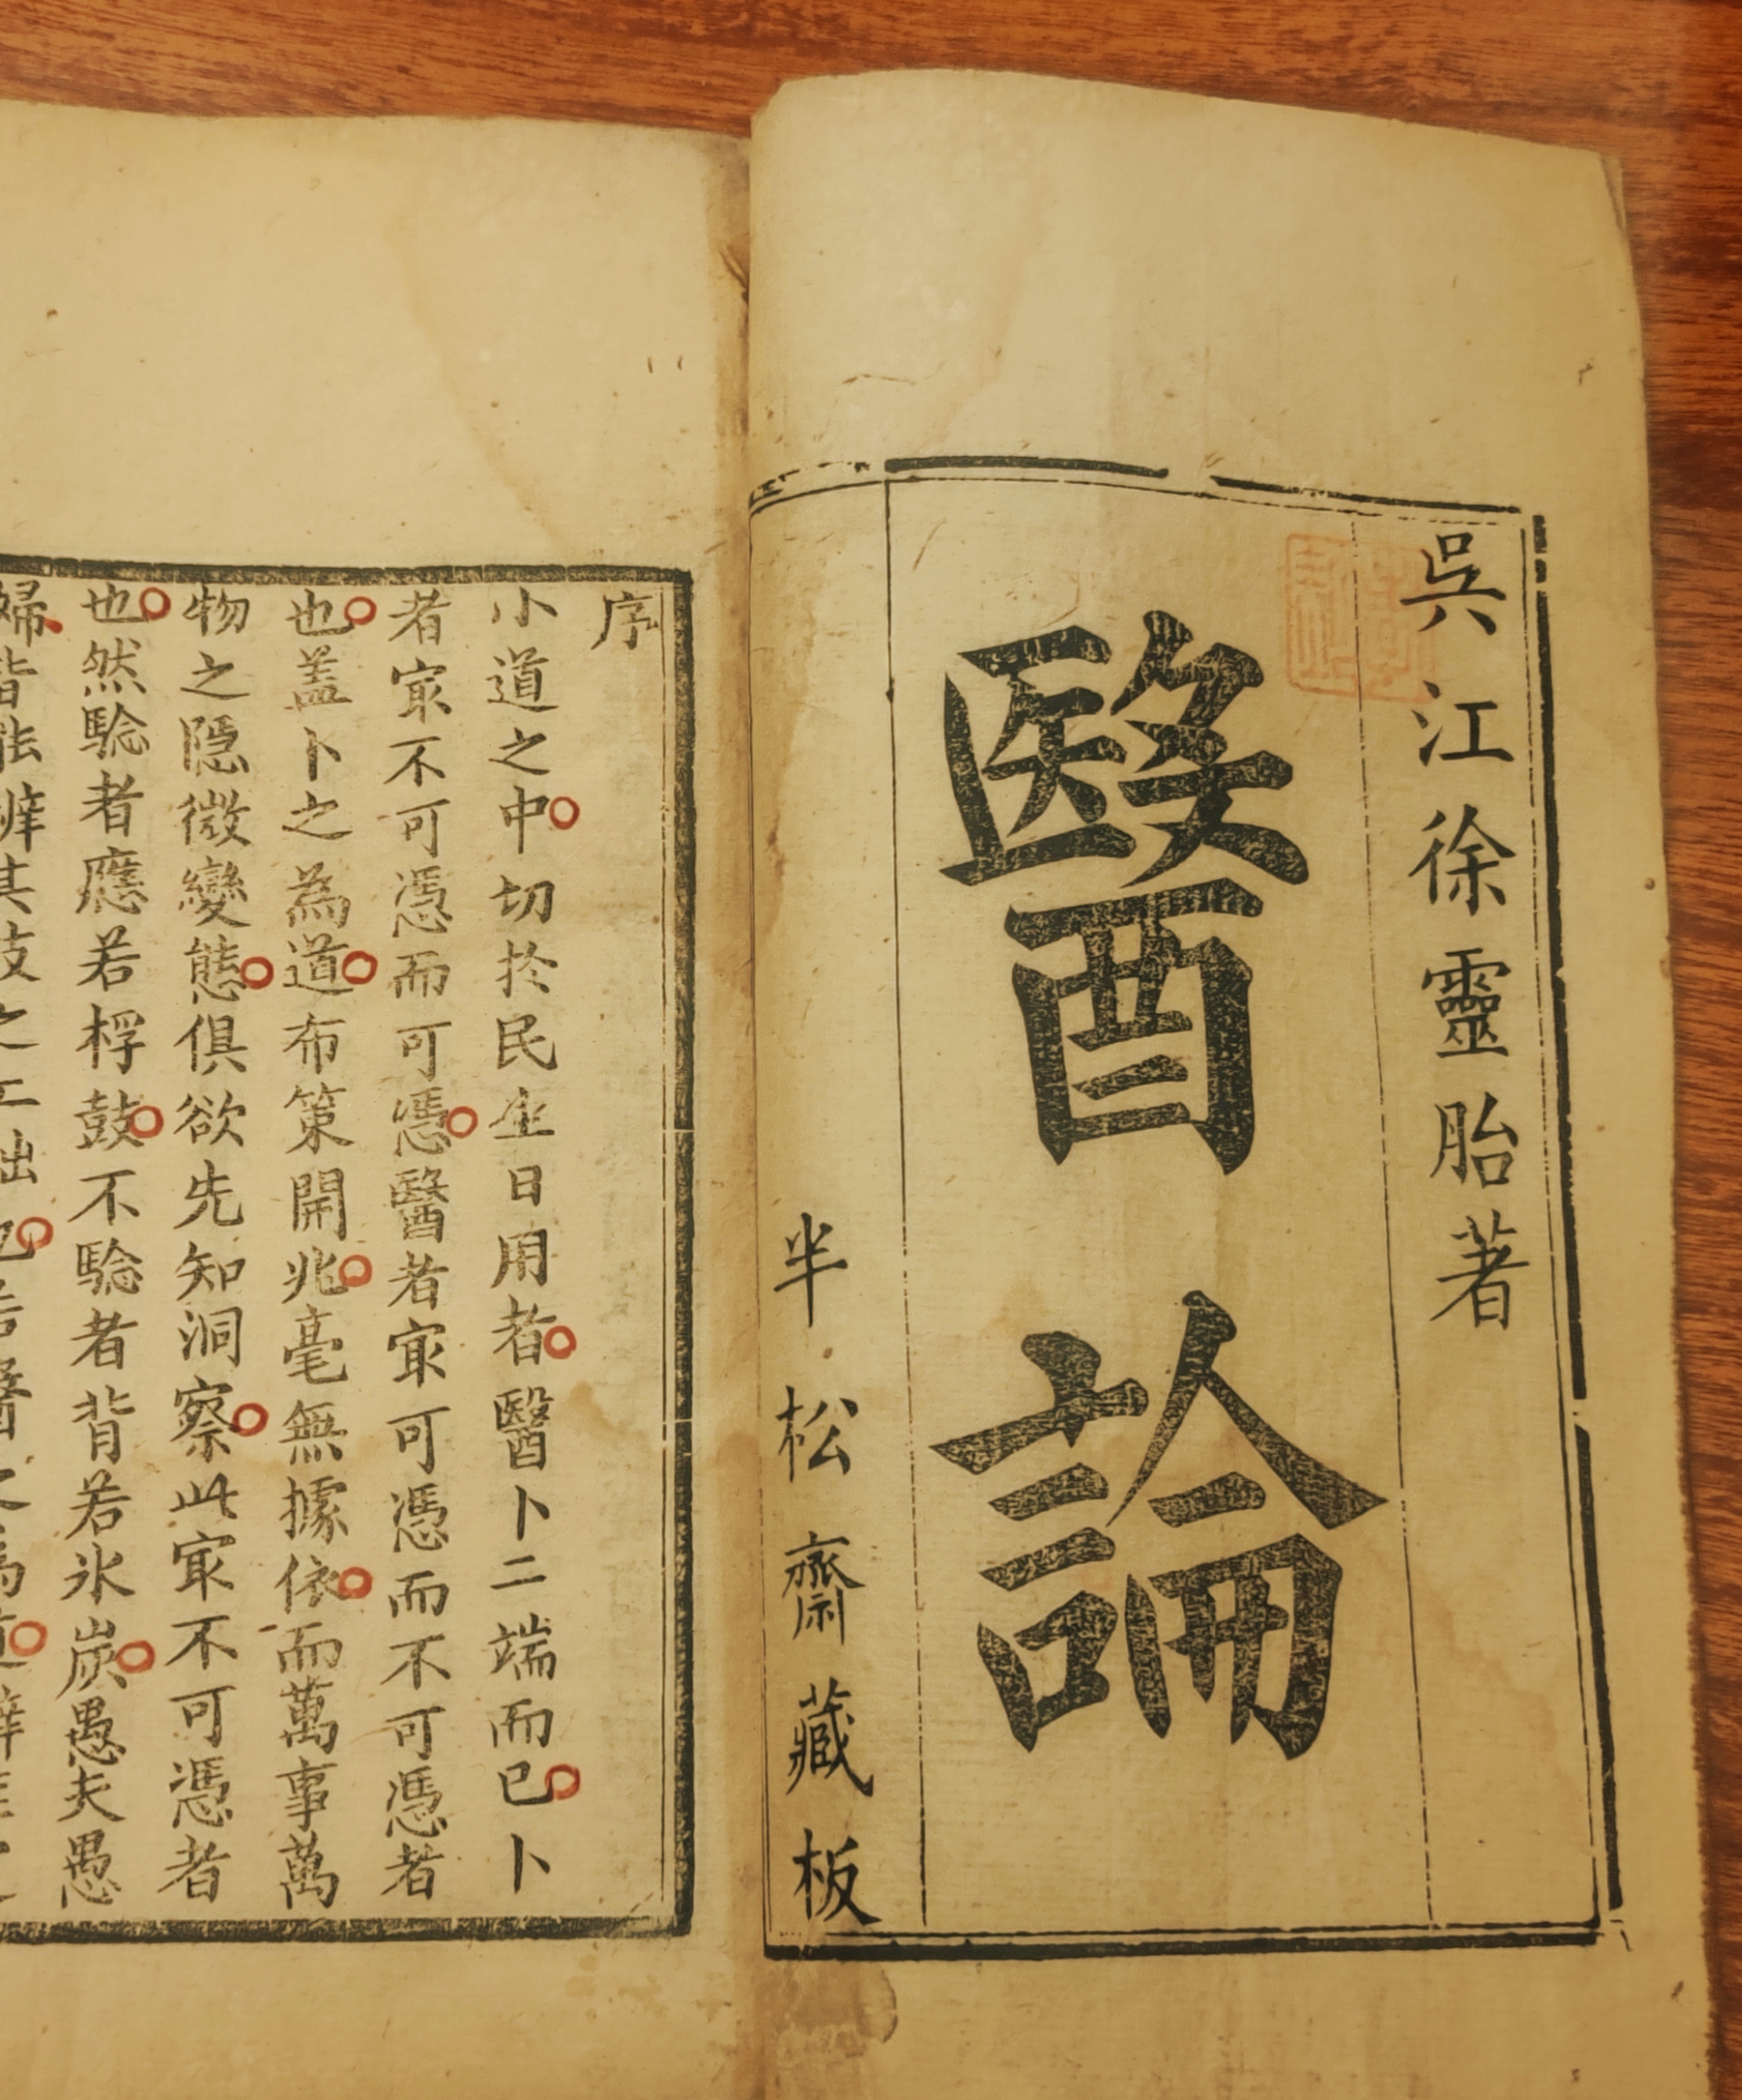 吳江徐靈胎著
醫論
半松齋藏板
序
小道之中切於民生日用者醫卜二端而已卜
者冣不可憑而可憑醫者冣可憑而不可憑者
也盖卜之為道布策開兆毫無據依而萬事萬
物之隱微變態俱欲先知洞察此冣不可憑者
也然驗者應若桴鼓不驗者背若氷炭愚夫愚
婦皆能辨其技之工拙也若醫之為道